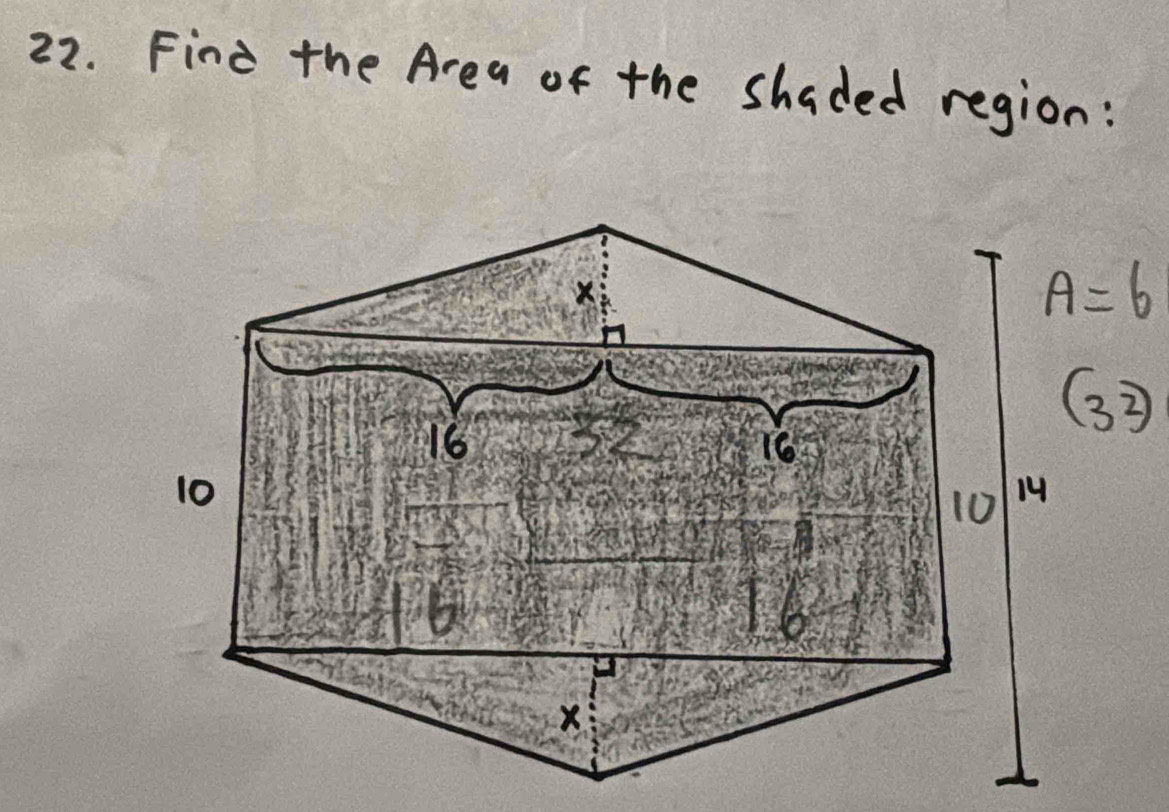 22. Find the Area of the shaded region:
x
A = 6
(32)
16 32 16
10 10 14
16 16
x